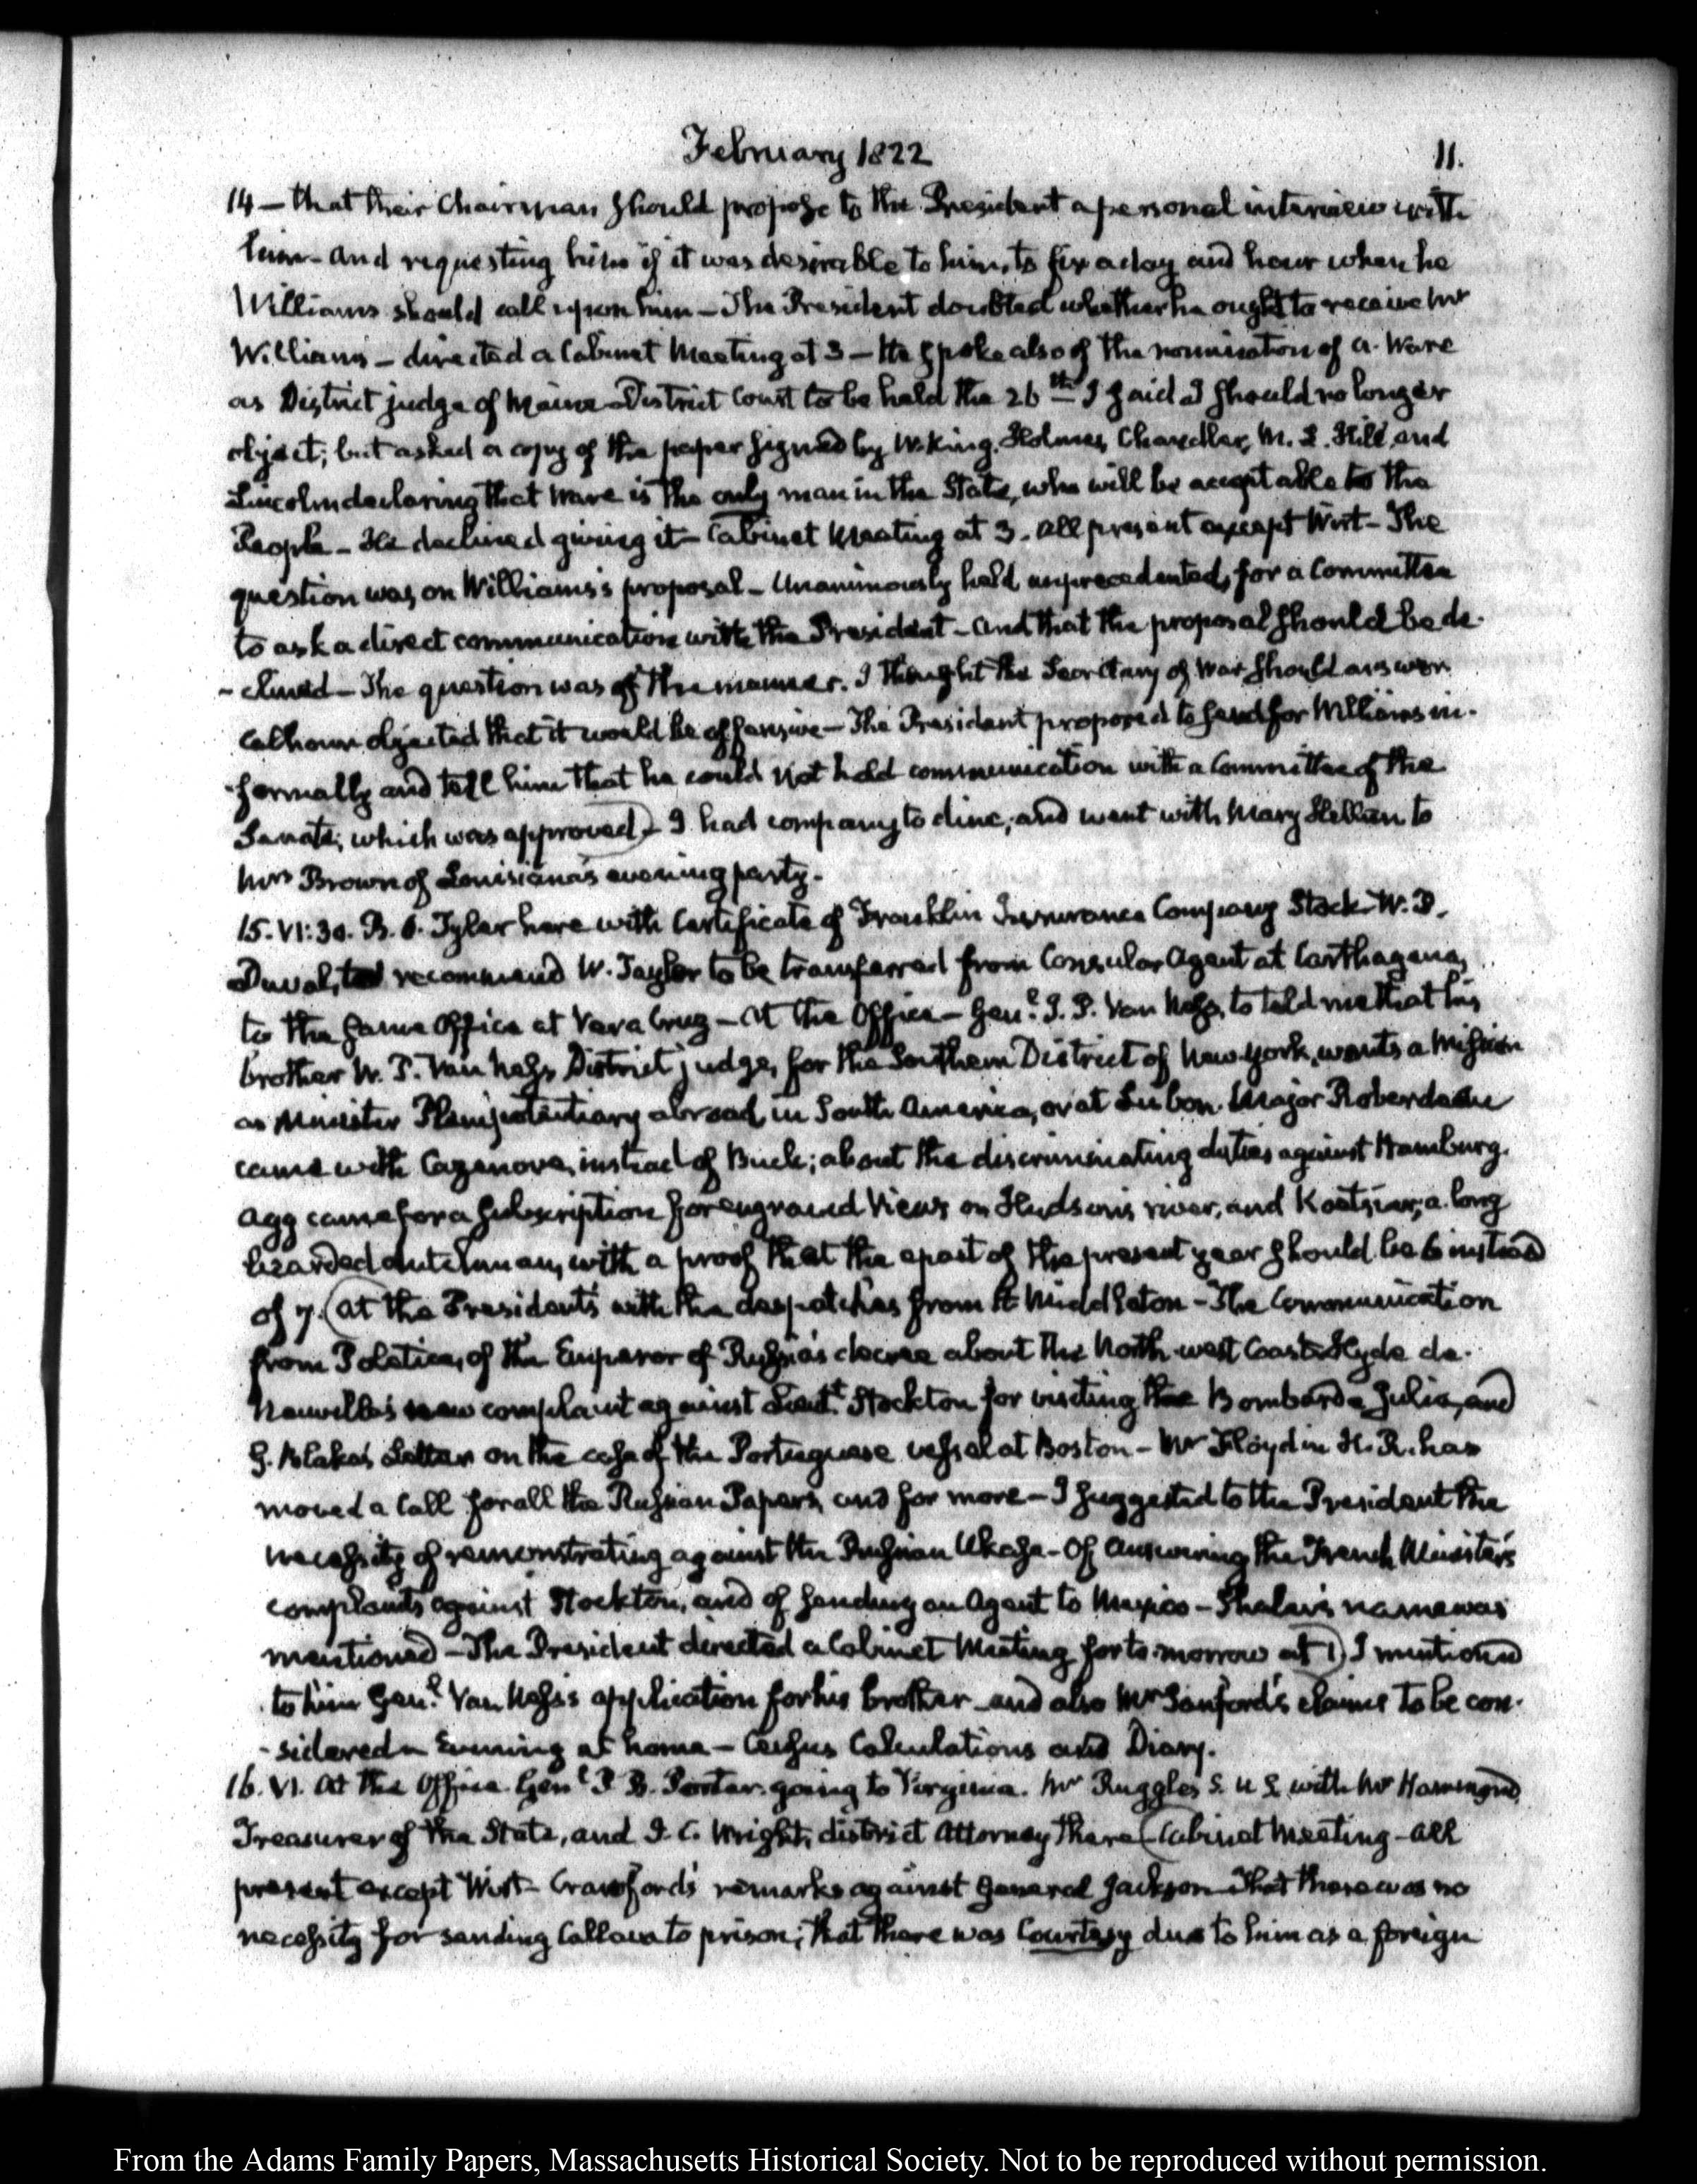 February 1822
11.
14 — that their Chairman should propose to the President a personal interview with
him — and requesting him if it was desirable to him, to fix a day and hour when he
Williams should call upon him — The President doubted whether he ought to receive Mr
Williams — directed a Cabinet Meeting at 3 — He spoke also of the nomination of A. Ware
as District judge of Maine — District Court to be held the 26th — I said I should no longer
object; but asked a copy of the paper signed by W. King, Holmes, Chandler, M. L. Hill and
Lincoln declaring that Ware is the only man in the State, who will be acceptable to the
People — He declined giving it — Cabinet Meeting at 3. all present except Wirt — The
question was, on Williams's proposal — Unanimously held unprecedented, for a Committee
to ask a direct communication with the President — and that the proposal should be de-
-clined — The question was of the manner. I thought the Secretary of War should answer
Calhoun objected that it would be offensive — The President proposed to send for Williams in-
-formally and tell him that he could not hold communication with a Committee of the
Senate; which was approved) — I had company to dine; and went with Mary Hellen to
Mrs Brown of Louisiana's evening party.
15. VI:30. B. O. Tyler here with Certificate of Franklin Insurance Company Stock. W. P.
Duval, to recommend W. Taylor to be transferred from Consular Agent at Carthagena,
to the same Office at Vera Cruz — At the Office — Genl. J. P. Van Ness, to told me that his
brother W. P. Van Ness District judge, for the Southern District of New York, wants a Mission
as Minister Plenipotentiary abroad, in South America, or at Lisbon. Major Roberdeau
came with Cazenove, instead of Buck; about the discriminating duties against Hamburg.
Agg came for a subscription for engraved Views on Hudson's river, and Koetsier, a long
bearded dutchman, with a proof that the epact of the present year should be 6 instead
of 7. (At the President's with the despatches from H. Middleton — The Communication
from Poletica, of the Emperor of Russia's decree about the North-west Coast. Hyde de-
Neuville's new complaint against Lieutt. Stockton for visiting the Bombarde Julie, and
G. Blake's Letter on the case of the Portuguese vessel at Boston — Mr Floyd in H. R. has
moved a Call for all the Russian Papers, and for more — I suggested to the President the
necessity of remonstrating against the Russian Ukase — Of answering the French Minister's
complaints against Stockton, and of sending an Agent to Mexico — Shaler's name was
mentioned — The President directed a Cabinet Meeting for to-morrow at 1) I mentioned
to him Genl. Van Ness's application for his brother — and also Mr Sanford's claims to be con-
-sidered — Evening at home — Census Calculations and Diary.
16. VI. At the Office. Genl P. B. Porter. going to Virginia. Mr Ruggles S. U S. with Mr
Treasurer of the State, and J. C. Wright, district Attorney there (Cabinet Meeting — all
present except Wirt — Crawford's remarks against General Jackson — That there was no
necessity for sending Callava to prison; that there was Courtesy due to him as a foreign
From the Adams Family Papers, Massachusetts Historical Society. Not to be reproduced without permission.